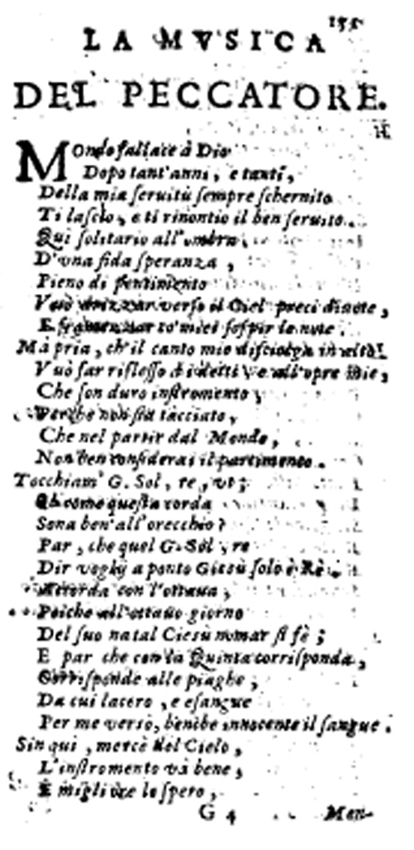 155
LA MVSICA
DEL PECCATORE.
MOndo fallace à Dio
Dopo tant'anni, e tanti,
Della mia seruitù sempre schernito
Ti lascio, e ti rinontio il ben seruito.
Qui solitario all'ombra
D'vna fida speranza,
Pieno di pentimento
Vuò drizzar verso il Ciel preci diuote,
E co' miei sospir le note.
Mà pria, ch'il canto mio disciolga in alto
Vuò far riflesso à i detti, e all'opre mie,
Che son duro instromento,
Perche non sia tacciato,
Che nel partir dal Mondo,
Non ben considerai il partimento.
Tocchiam' G. Sol, re, vt;
Oh come questa corda
Sona ben'all'orecchio?
Par, che quel G. Sol, re
Dir voglij a ponto Giesù solo è Rè.
Accorda con l'ottaua,
Poiche all'ottauo giorno
Del suo natal Giesù nomar si fè;
E par che con la Quinta corrisponda,
Corrisponde alle piaghe,
Da cui lacero, e esangue
Per me versò, benche innocente il sangue.
Sin qui, mercè del Cielo,
L'instromento và bene,
E migliore lo spero,
G 4 Men-